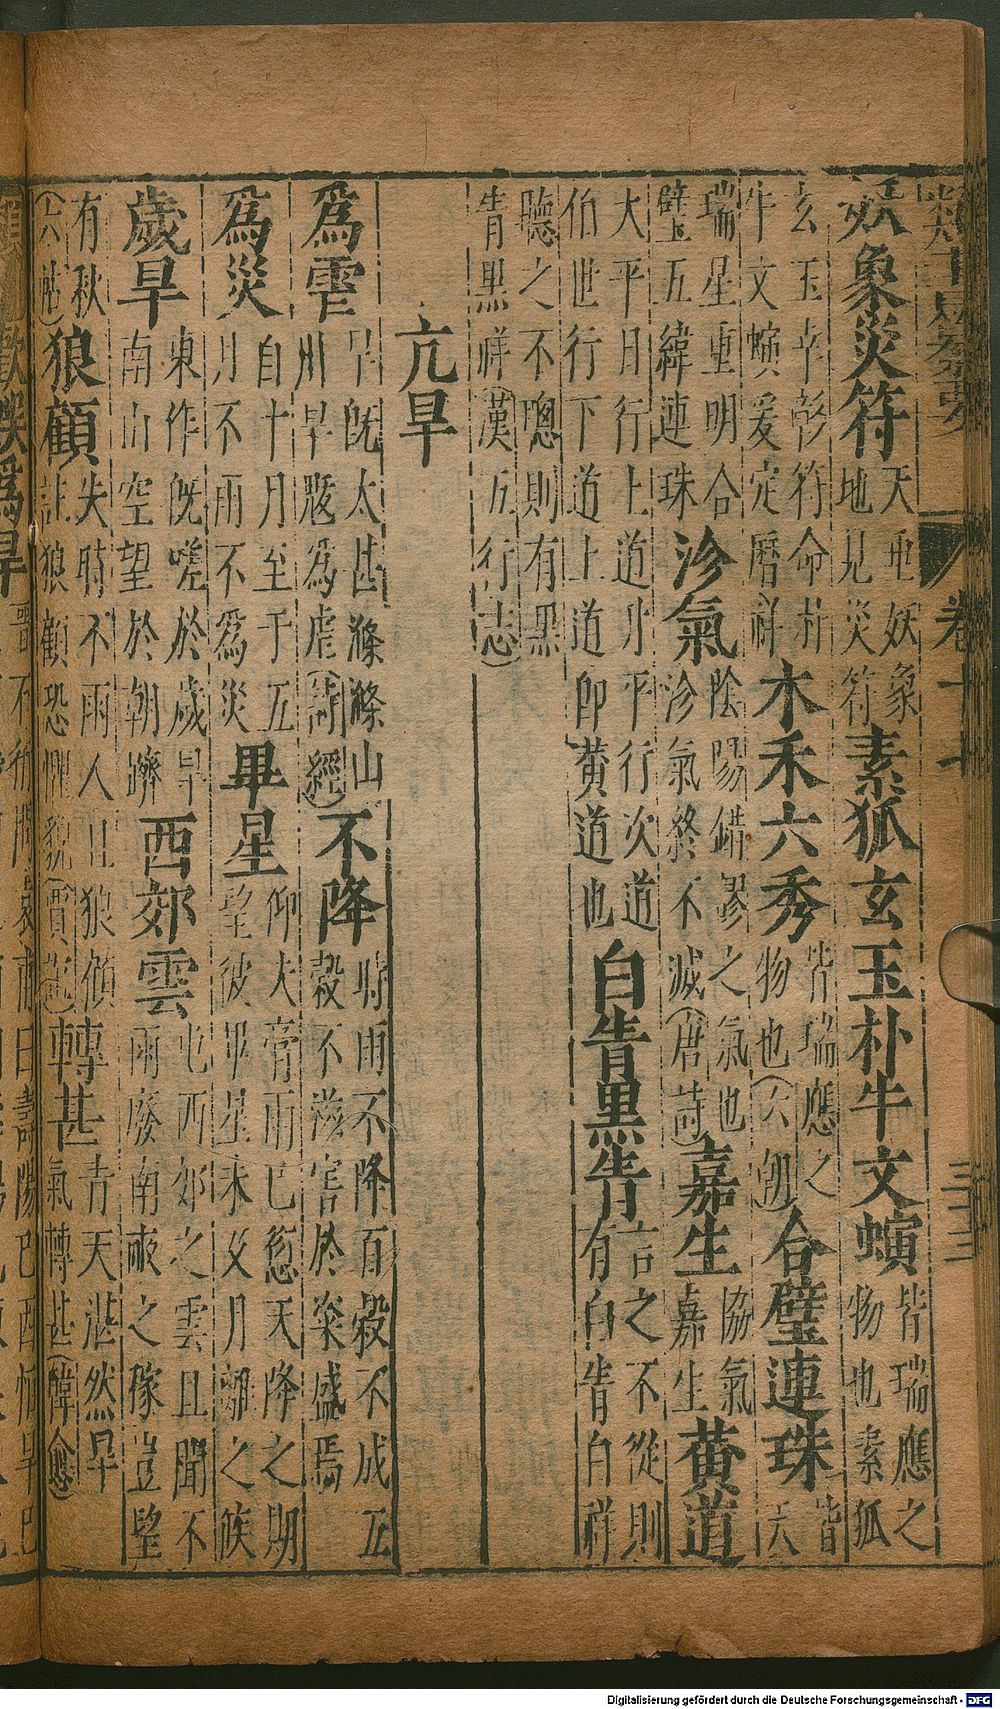 卷十七 三十三
妖象災符 天垂妖象
地見災符 素狐玄玉朴牛文螾 皆瑞應之
物也素狐
玄玉辛彭符命朴
牛文螾爰定曆祥 木禾六秀 皆瑞應之
物也 合璧連珠 皆
天
瑞星重明合
璧五緯連珠 沴氣 陰陽錯謬之氣也
沴氣終不滅(唐詩) 嘉生 協氣
嘉生 黄道
大平日行上道升平行次道
伯世行下道上道即黄道也 白眚黑眚 言之不從則
有白眚白祥
聽之不聰則有黑
眚黑祥(漢五行志)
亢旱
爲雩 旱既太甚滌滌山
川旱魃爲虐(詩經) 不降 時雨不降百穀不成五
穀不滋害於粢盛焉
爲災 自十月至于五
月不雨不爲災 畢星 仰大膏雨已愆天降之期
望彼畢星未父月離之候
歲旱 東作既嗟於歲旱
南山空望於朝隮 西郊雲 屯西郊之雲且聞不
雨廢南畝之稼豈望
有秋
(六帖) 狼顧 失時不雨人且狼顧
註狼顧恐懼貌(賈誼) 轉甚 青天湛然旱
氣轉甚(韓愈)
Digitalisierung gefördert durch die Deutsche Forschungsgemeinschaft - DFG